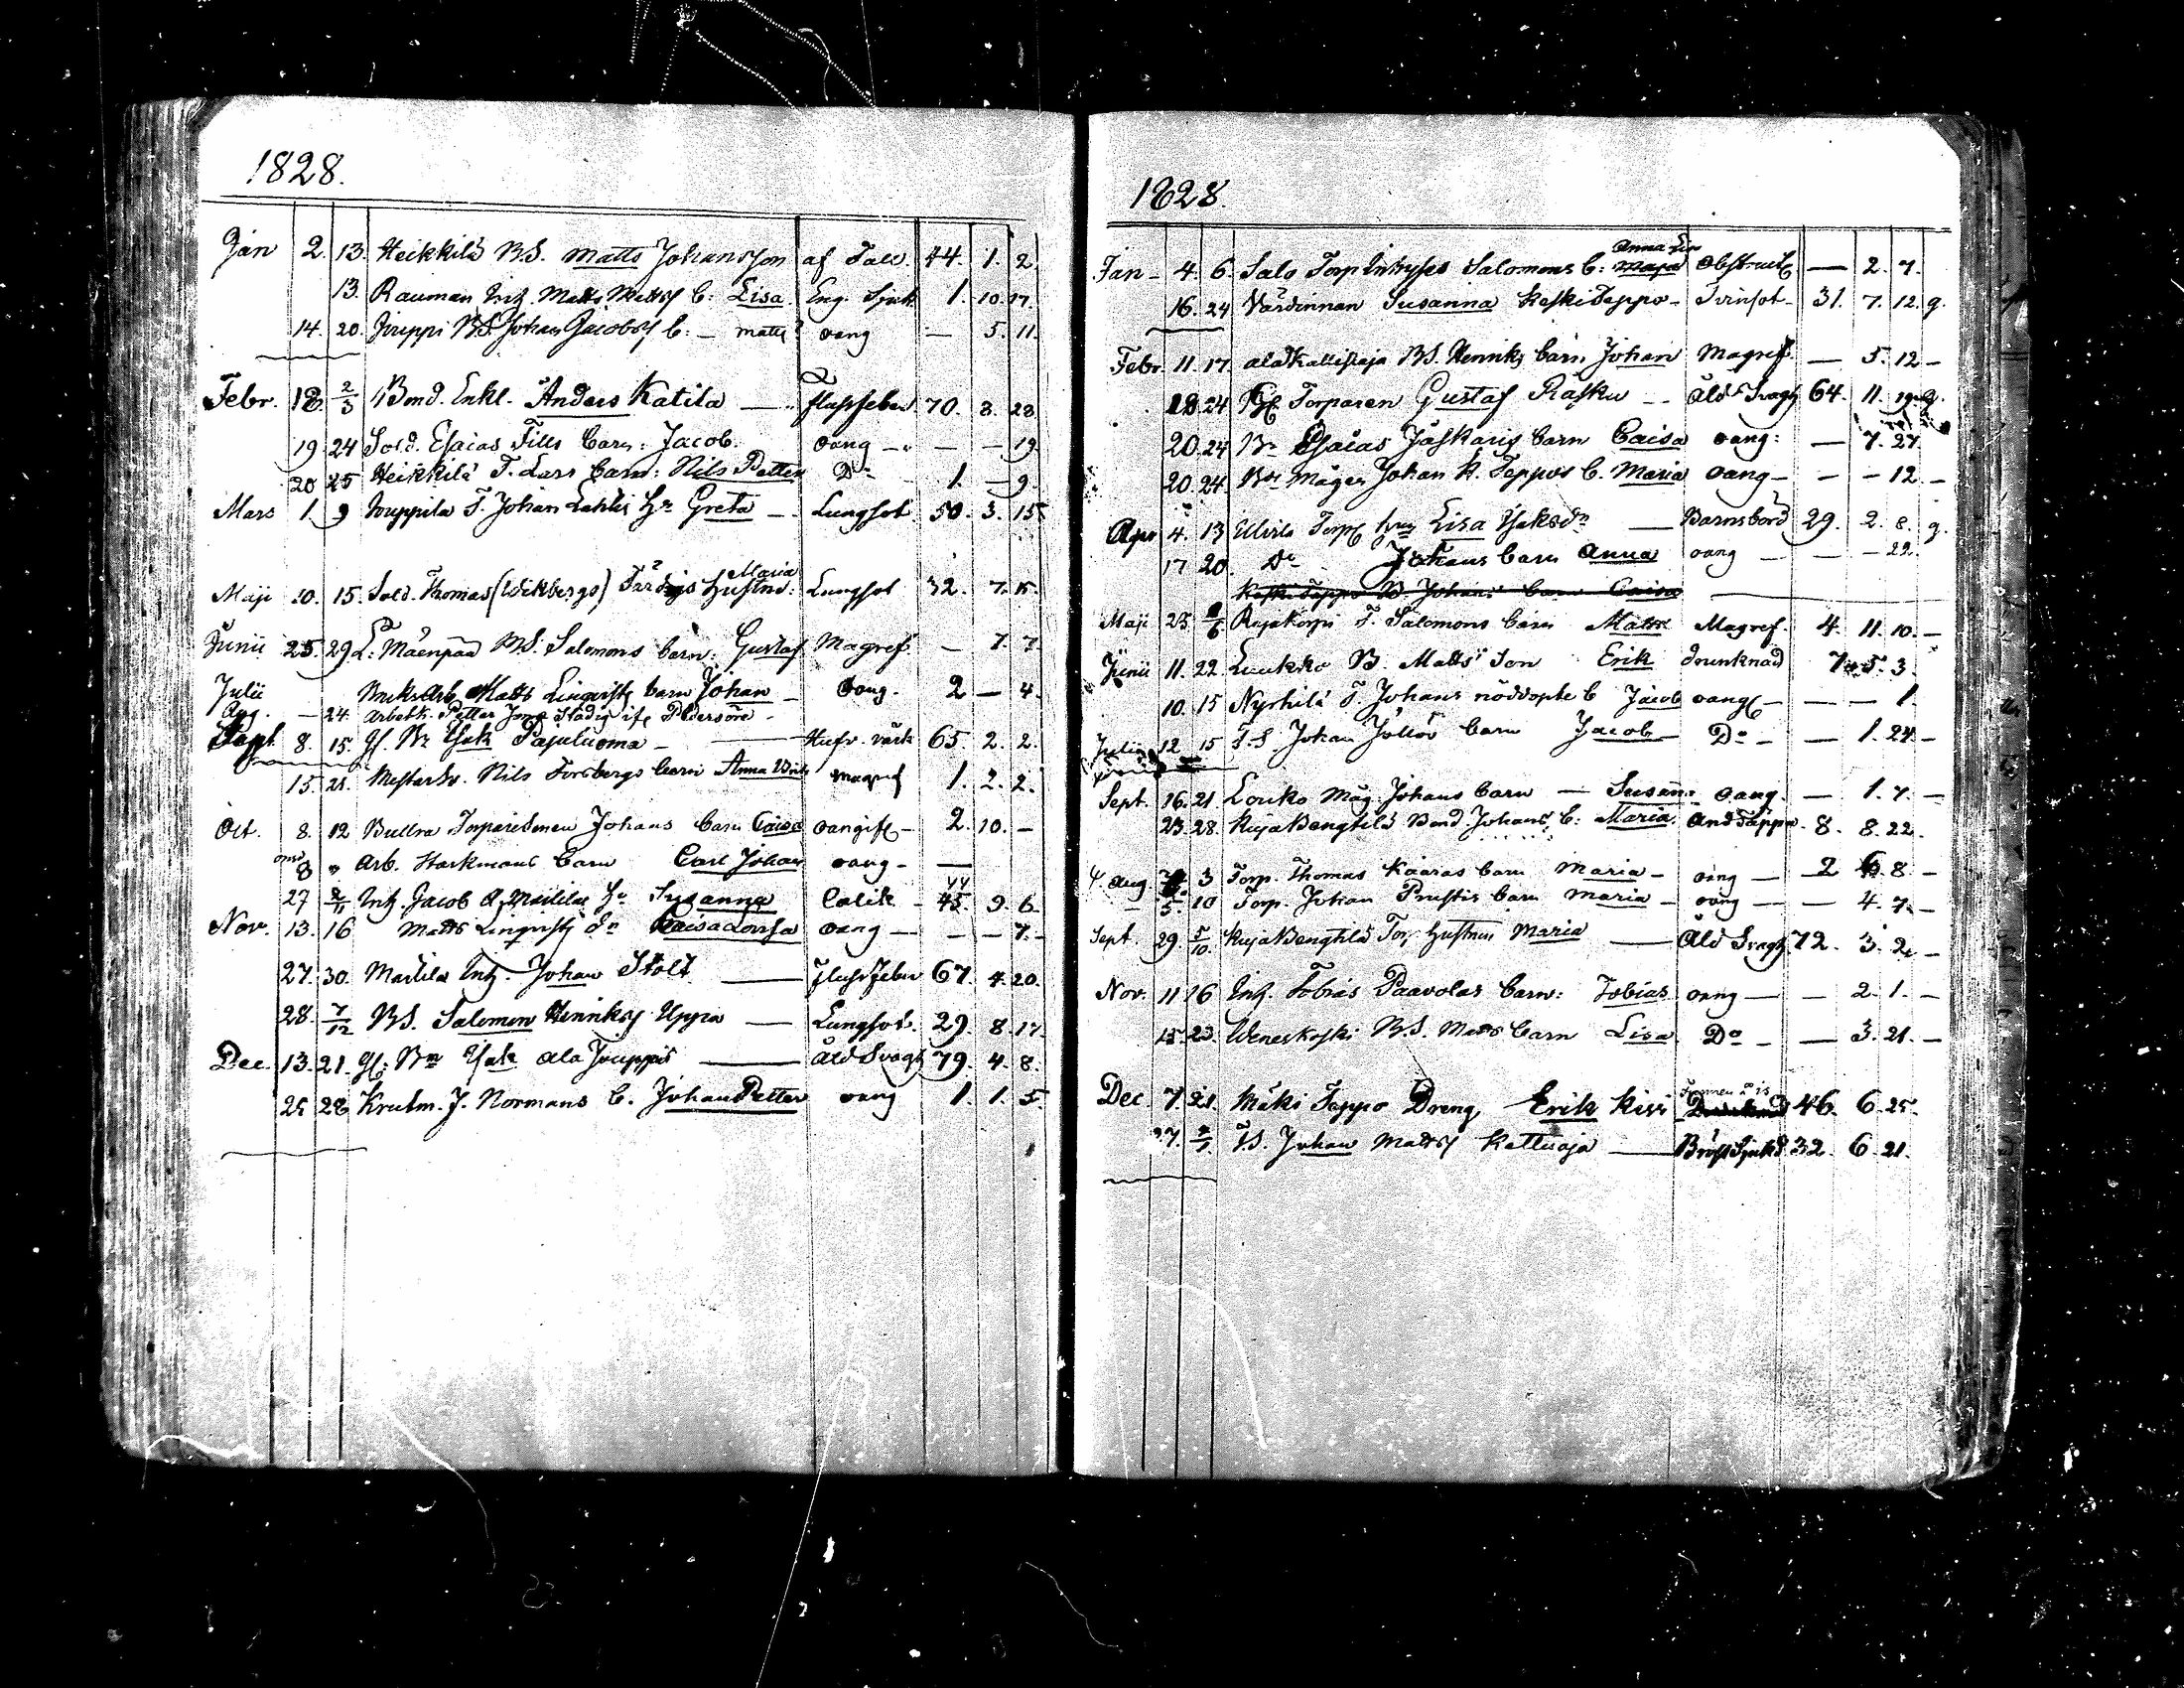 1828.
Jan 2. 13. Heikkilä B.S. Matts Johansson af Fall. 44. 1. 2.
13. Rauman Inh. Matts Matts C: Lisa. Eng. Sjuk 1. 10. 17.
14. 20. Jouppi BS Johan Jacobs C: – Matts oang — 5. 11.
Febr. 18. 2/3 Bond. Enkl. Anders Katila — flussfeber 70. 3. 28
19. 24 Sold. Esaias Fills Barn: Jacob. oang — — 19.
20 25 Heikkilä T. Lars Barn: Nils Petter Do 1. — 9.
Mars 1. 9 Jouppila T. Johan Lahtis Hu Greta — Lungsot 50. 3. 15.
Maria
Maji 10. 15. Sold. Thomas (Wikbergs) Färdigs Hustru: Lungsot 32. 7. 15.
Junii 25. 29 L: Mäenpää B.S. Salomons Barn: Gustaf Magref. — 7. 7.
Julii Matts Linqvists Barn Johan – oang. 2 — 4.
Aug. — 24. Arbetsk. Petter Stadig if Pedersöre –
Sept. 8. 15. Gl. Bn Isak Pajuluoma — Hufv. värk 65. 2. 2.
15. 21. Nils Forsbergs Barn Anna magref 1. 2. 2.
Oct. 8. 12 Bullra Johans Barn Caisa oangif – 2. 10. –
8 „ Arb. Starkmans Barn Carl Johan oang – —
44
27 2/11 Inh. Jacob A. Martilas Hu Susanna Colik – 45. 9. 6.
Nov. 13. 16 Matts Linqvists Dr Caisa Lovisa oang — — — 7. –
27. 30. Martila Inh. Johan Stolt — flussfeber 67. 4. 20.
28. 7/12 BS. Salomon Henriks Uppa — Lungsot. 29. 8. 17.
Dec. 13. 21. Gl: Bn Isak Ala Jouppis — Åld Svagh 79. 4. 8.
25 28 Krutm. J. Normans C. Johan Petter oang 1. 1. 5.
1828.
Anna Lis
Jan – 4. 6. Salo Torp Inhyses Salomons C: Maja Obstruct. — 2. 7.
16. 24 Värdinnan Susanna KeskiSeppo – Tvinsot – 31. 7. 12. g.
Febr. 11. 17. Alatkallistaja BS. Henriks Barn Johan Magref. — 5. 12 –
18 24 Gl. Torparen Gustaf Räsku – Åld Svagh 64. 11. 19. g.
20. 24 Bn Esaias Jäskaris Barn Caisa oang: — 7. 27
20. 24. Bn Mågen Johan K. Seppos C. Maria oang – – – 12. –
Apr 4. 13 Torp hu Lisa Isaksdr — Barnsbörd 29. 2. 8. g.
17 20. Do Johans Barn Anna oang — — – 22.
KeskiSeppo B Johans Barn Caisa
Maji 25. 6 T. Salomons Barn Matts Magref. 4. 11. 10. –
Junii 11. 22. Luukko B. Matts Son Erik drunknad 7. 5. 3.
10. 15 Nyrhilä T. Johans nöddopte C Jacob oang – — — 1.
Julii 12 15 T.S Johan Barn Jacob – Do – — 1. 24. –
Sept. 16. 21 Louko Måg. Johans Barn — Susan: oang. — 1. 7. –
23. 28. RujaBengtilä Bond. Johans C: Maria. Andtäppa. 8. 8. 22.
Aug 3 Torp. Thomas Kaaras Barn Maria – oang — 2 6. 8. –
5. 10 Torp. Johan Barn Maria – oang — — 4. 7. –
Sept. 29. 5/10. RujaBengtilä Torp. Hustrun Maria — Åld Svagh 72. 3. 2. –
Nov. 11 16 Inh. Tobias Paavolas Barn: Tobias oang — — 2. 1. –
15. 23. Weneskoski B.S. Matts Barn Lisa Do – — 3. 21. –
Dec 7. 21. Mäki Seppo Dreng, Erik Kivi 46. 6. 25.
27. 2/1. T.S. Johan Matts Kattuaja — Bröstsjukd 32. 6. 21.